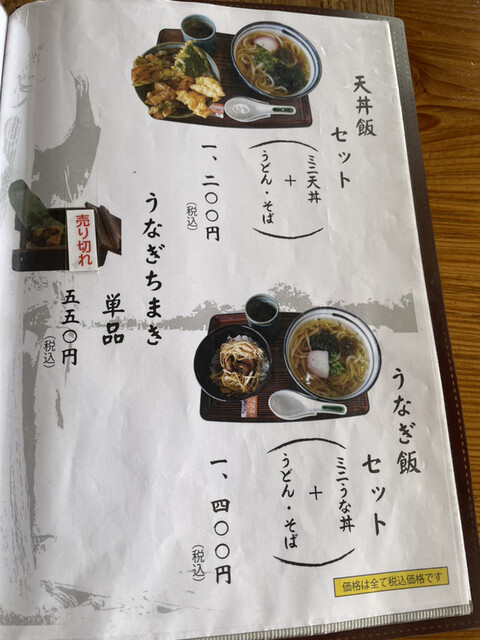 天丼飯
セット
(ミニ天丼
+
うどん・そば)
一、二〇〇円
(税込)
うなぎ飯
セット
(ミニうな丼
+
うどん・そば)
一、四〇〇円
(税込)
うなぎちまき
単品
五五〇円
(税込)
売り切れ
価格は全て税込価格です